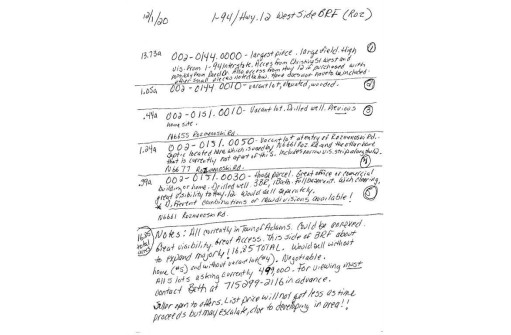 12/1/20 I-94/Hwy. 12 West Side BRF (Roz)
13.73a 002-0144.0000 - largest piece. large field. High ①
vis. from I-94 interstate. Access from Chrissy St west and
. Also access from Hwy 12 if purchased with
other small pieces noted below. Home does not have to be included.
1.05a 002-0144 0010 - vacant lot, elevated, wooded. ②
.44a 002-0151.0010 - Vacant lot. Drilled well. Previous ③
home site.
N6655 Roznenski Rd.
1.24a 002-0151.0050 - vacant lot at entry of Roznenski Rd.
Septic located here which is used by N6661 Roz Rd and the other home
that is currently not a part of this. Includes narrow vis. strip along Hwy 12.
N6677 Roznenski Rd. ④
.39a 002-0151.0030 - House parcel. Great office or commercial
building or home. Drilled well. 3BR, 1Bath. Full basement. With clearing,
great visibility to Hwy 12. Would sell separately. ⑤
* Different combinations or new divisions available!
N6661 Roznenski Rd.
16.85 total acres
Notes: All currently in Town of Adams. Could be annexed.
Great visibility. Great Access. This side of BRF about
to expand majorly! 16.85 TOTAL. Would sell without
home (#5) and without vacant lot (#4). Negotiable.
All 5 lots asking currently 499,000. For viewing must
contact Beth at 715-299-2116 in advance.
Seller open to offers. List price will not get less as time
proceeds but may escalate, due to developing in area!!